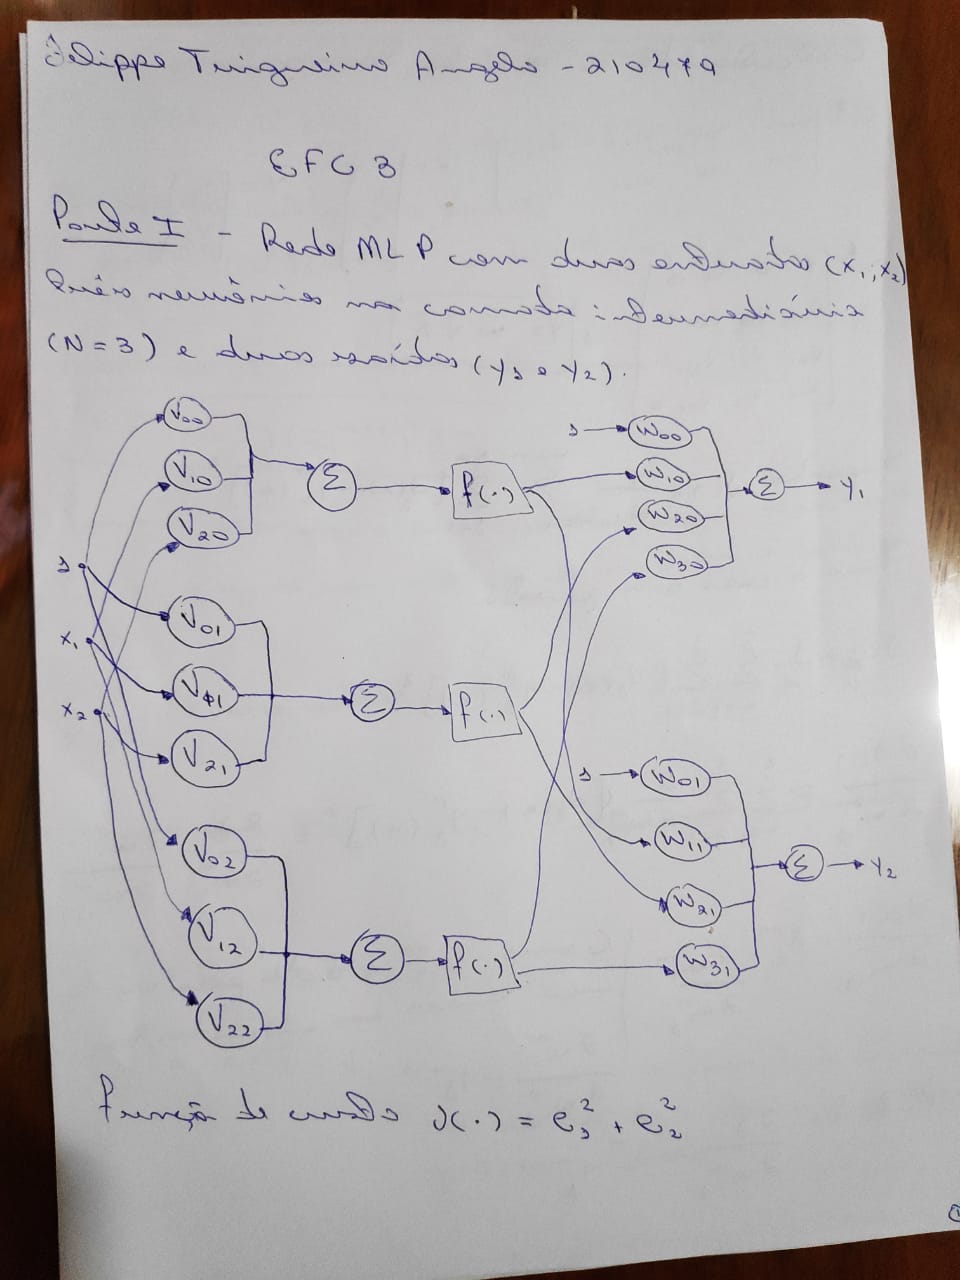 Felippe Trigueiro Angelo - 210479
EFC 3
Parte I - Rede MLP com duas entradas (x1, x2)
três neurônios na camada intermediária
(N=3) e duas saídas (y1 e y2).
V00
V10
V20
1
x1
x2
V01
V11
V21
V02
V12
V22
Σ
Σ
Σ
f(.)
f(.)
f(.)
1
W00
W10
W20
W30
Σ
y1
1
W01
W11
W21
W31
Σ
y2
Função de custo J(.) = e1² + e2²
1